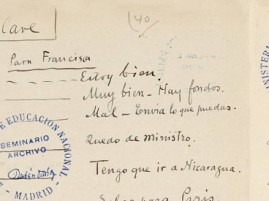 Clave
40
Para Francisca
Estoy bien.
Muy bien - Hay fondos.
Mal - Envía lo que puedas.
Quedo de Ministro.
Tengo que ir a Nicaragua.
para París
DE EDUCACIÓN NACIONAL
SEMINARIO
ARCHIVO
MADRID
MINISTERI